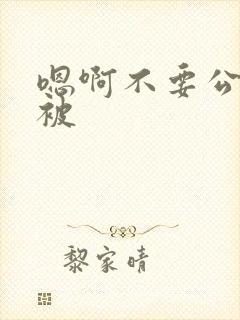 嗯啊不要公
被
黎家晴